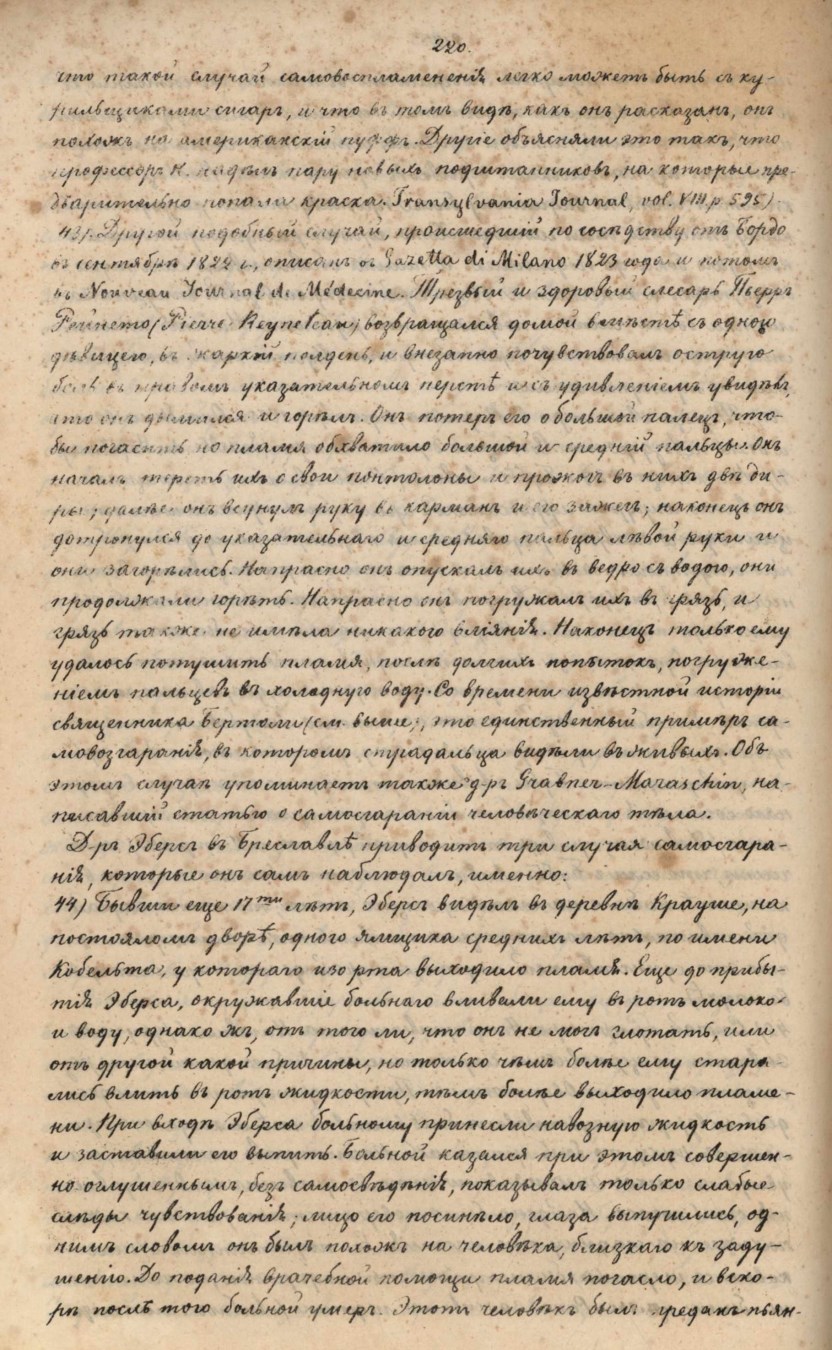 220.
что такой случай самовоспламененія легко можетъ быть съ ку-
рильщиками сигаръ, и что въ томъ видѣ, какъ онъ расказанъ, онъ
похожъ на американскій пуффъ. Другіе объясняли это такъ, что
профессоръ К. надѣлъ пару новыхъ подштанниковъ, на которые пре-
дварительно попала краска. Transylvania Journal, vol. VIII p 595).
43). Другой подобный случай, происшедшій по сосѣдству отъ Бордо
въ сентябрѣ 1822 г., описанъ въ Gazetta di Milano 1823 года и потомъ
въ Nouveau Journal de Médecine. Трезвый и здоровый слесарь Пьерръ
(Pierre возвращался домой вмѣстѣ съ одною
дѣвицею, въ жаркій полдень, и внезапно почувствовалъ острую
боль въ правомъ указательномъ перстѣ и съ удивленіемъ увидѣлъ,
что онъ дымился и горѣлъ. Онъ потеръ его о большой палецъ, что-
бы погасить но пламя обхватило большой и средній пальцы. Онъ
началъ тереть ихъ о свои понтолоны и прожогъ въ нихъ двѣ ды-
ры; далѣе онъ всунулъ руку въ карманъ и его зажегъ; наконецъ онъ
дотронулся до указательнаго и средняго пальца лѣвой руки и
они загорѣлись. Напрасно онъ опускалъ ихъ въ ведро съ водою, они
продолжали горѣть. Напрасно онъ погружалъ ихъ въ грязь, и
грязь также не имѣла никакого вліянія. Наконецъ только ему
удалось потушить пламя, послѣ долгихъ попытокъ, погруже-
ніемъ пальцевъ въ холодную воду. Со времени извѣстной исторіи
священника Бертоли (см. выше), это единственный примѣръ са-
мовозгаранія, въ которомъ страдальца видѣли въ живыхъ. Объ
этомъ случаѣ упоминаетъ также д-ръ Grabner-Maraschin, на-
писавшій статью о самосгараніи человѣческаго тѣла.
Д-ръ Эберсъ въ Бреславлѣ приводитъ три случая самосгара-
нія, которые онъ самъ наблюдалъ, именно:
44) Бывши еще 17ти лѣтъ, Эберсъ видѣлъ въ деревнѣ Крауше, на
постояломъ дворѣ, одного ямщика среднихъ лѣтъ, по имени
Кобельта, у котораго изо рта выходило пламя. Еще до прибы-
тія Эберса, окружавшіе больнаго вливали ему въ ротъ молоко
и воду, однако жъ, отъ того ли, что онъ не могъ глотать, или
отъ другой какой причины, но только чѣмъ болѣе ему стара-
лись влить въ ротъ жидкости, тѣмъ болѣе выходило пламе-
ни. При входѣ Эберса больному принесли навозную жидкость
и заставили его выпить. Больной казался при этомъ совершен-
но оглушеннымъ, безъ самосвѣдѣнія, показывалъ только слабые
слѣды чувствованія; лицо его посинѣло, глаза выпучились, од-
нимъ словомъ онъ былъ похожъ на человѣка, близкаго къ заду-
шенію. До поданія врачебной помощи пламя погасло, и вско-
рѣ послѣ того больной умеръ. Этотъ человѣкъ былъ преданъ пьян-